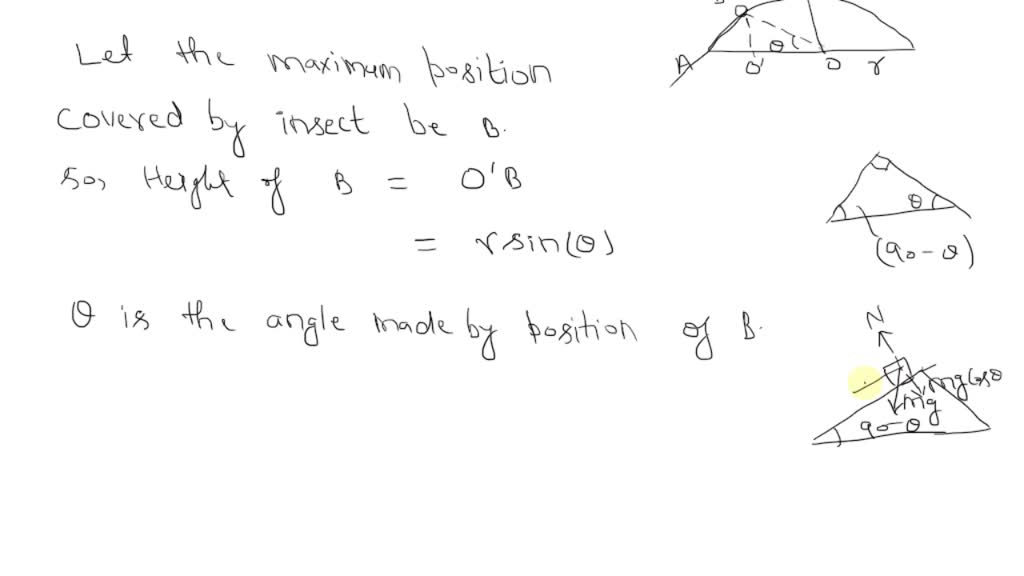 Let the maximum position
covered by insect be B.
So, Height of B = O'B
= r sin(θ)
θ is the angle made by position of B.
A O' θ O r
θ
(90-θ)
N
mg cosθ
mg
90-θ